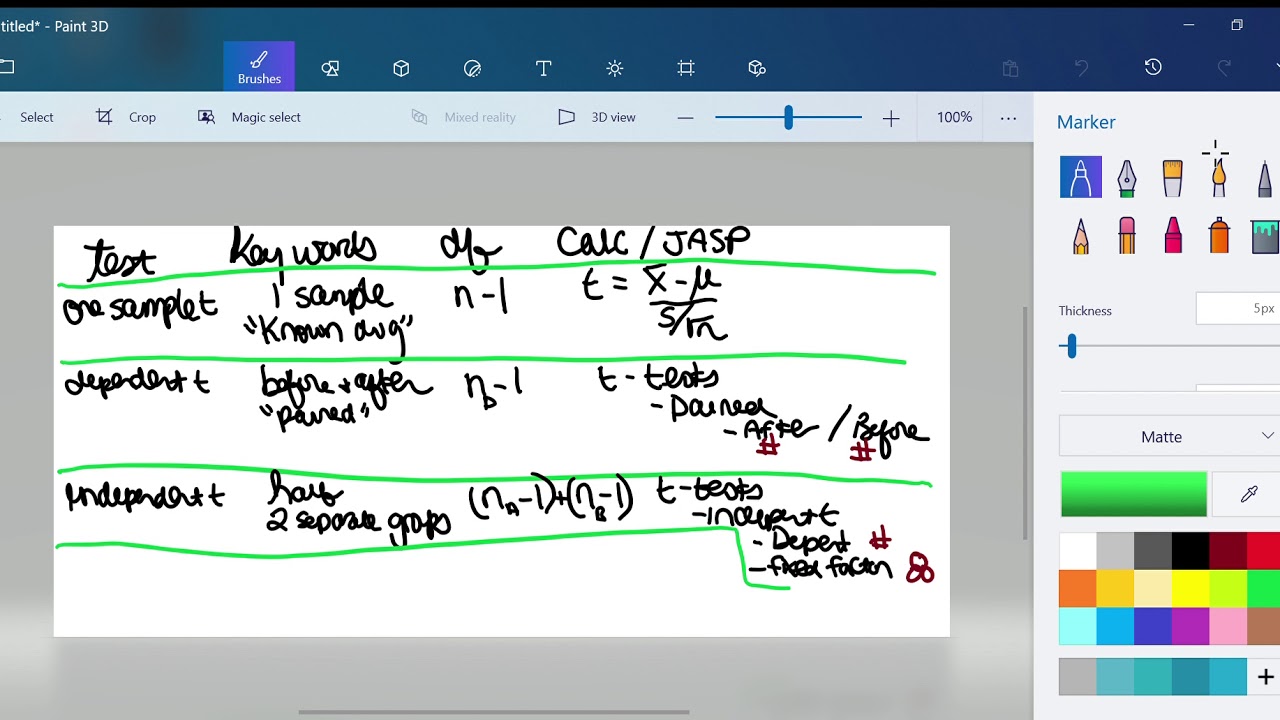 titled* - Paint 3D
Brushes
Select Crop Magic select Mixed reality 3D view 100%
Marker
Thickness 5px
Matte
test Key words df Calc / JASP
one sample t 1 sample n - 1 t = x̄ - μ
"Known avg" s/√n
dependent t before + after n_D - 1 t - tests
"paired" - Paired
- After / Before
# #
independent t half (n_A - 1) + (n_B - 1) t - tests
2 separate groups - Independent
- Depent #
- fixed factor